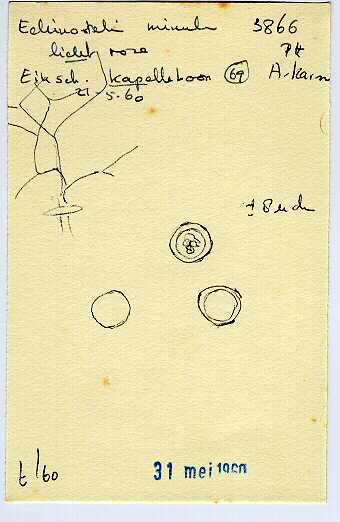 Echinosteli minut 3866
licht rose
Eiksch. Kapelleboom 69 A-Karn
21-5-60
t/60
31 mei 1960